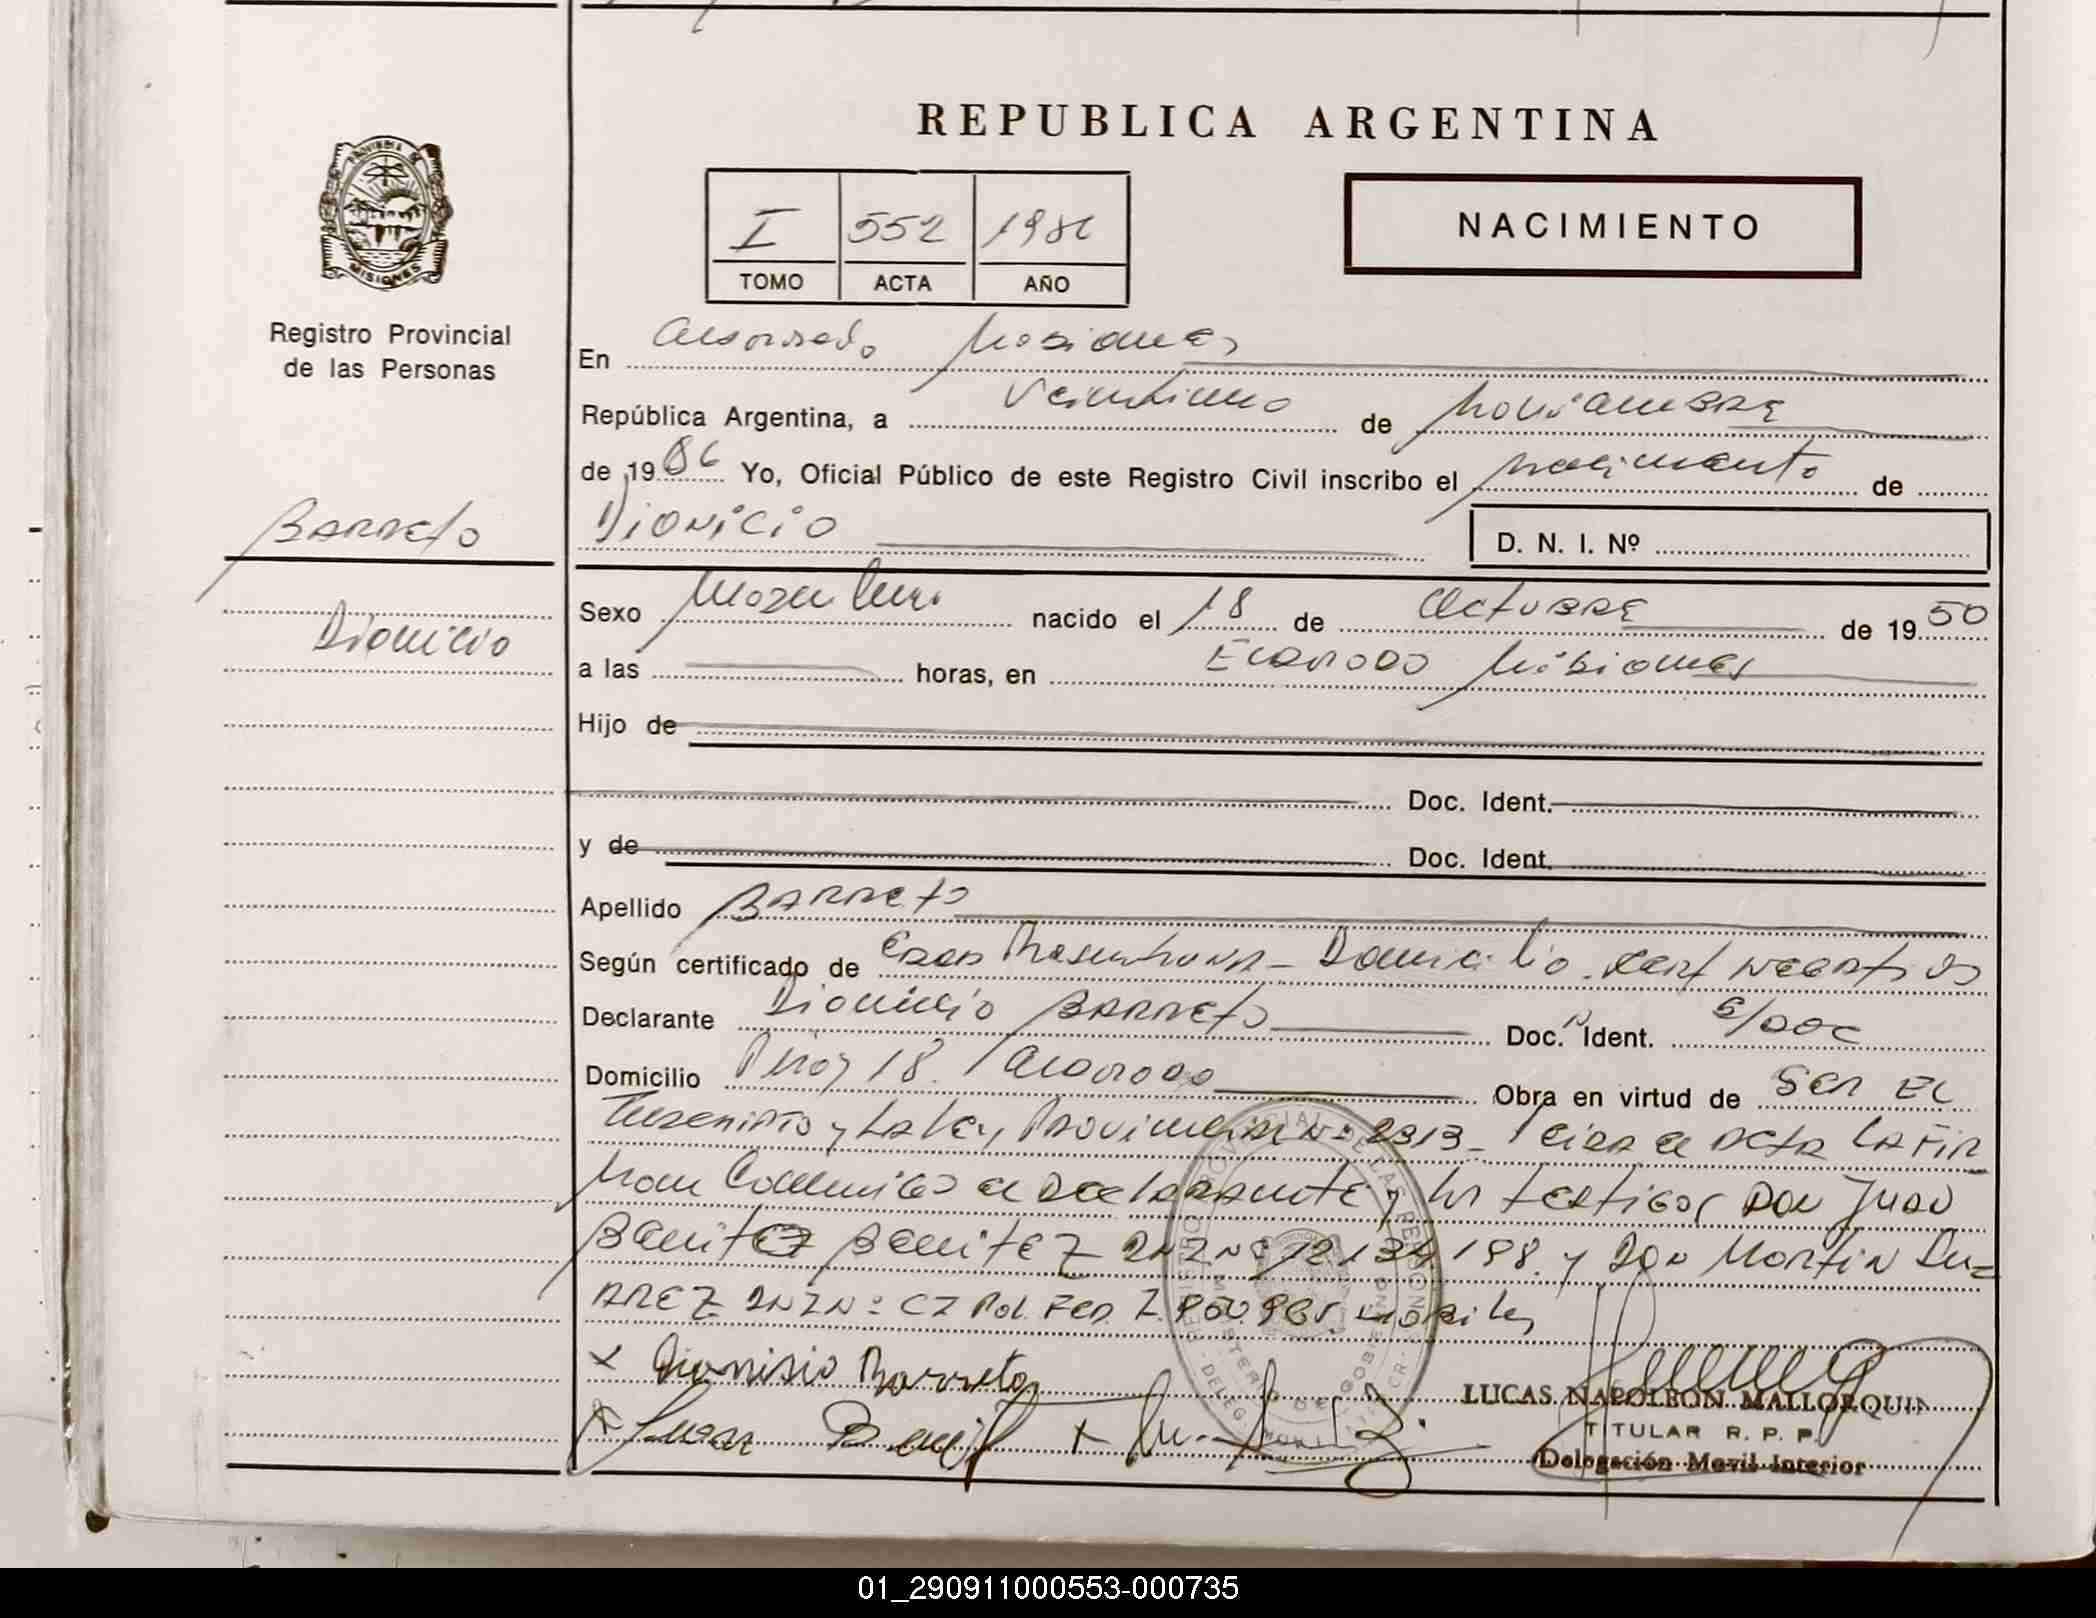 REPUBLICA ARGENTINA
PROVINCIA DE
MISIONES
Registro Provincial
de las Personas
I 552 1986
TOMO ACTA AÑO
NACIMIENTO
En Misiones
República Argentina, a Veintiuno de Noviembre
de 1986 Yo, Oficial Público de este Registro Civil inscribo el nacimiento de
Dionicio D. N. I. Nº
Barreto
Dionicio
Sexo Masculino nacido el 18 de Octubre de 1950
a las horas, en Eldorado Misiones
Hijo de
Doc. Ident.
y de Doc. Ident.
Apellido Barreto
Según certificado de Edad Presuntiva - Domicilio. Cert Negativos
Declarante Dionicio Barreto Doc. Ident. S/Doc
Domicilio Km 18. Eldorado Obra en virtud de Ser El
Inscripto y La Ley Provincial Nº 2313 - Leida el Acta La Fir
man Conmigo el Declarante y los testigos Don Juan
Benitez Benitez DNI Nº 12.134.198. y Don Martin Su=
arez DNI Nº CI Pol. Fed. 7.
x Dionisio Barreto
x Juan Benit x
LUCAS NAPOLEON MALLORQUIN
TITULAR R. P. P.
Delegación Movil Interior
01_290911000553-000735